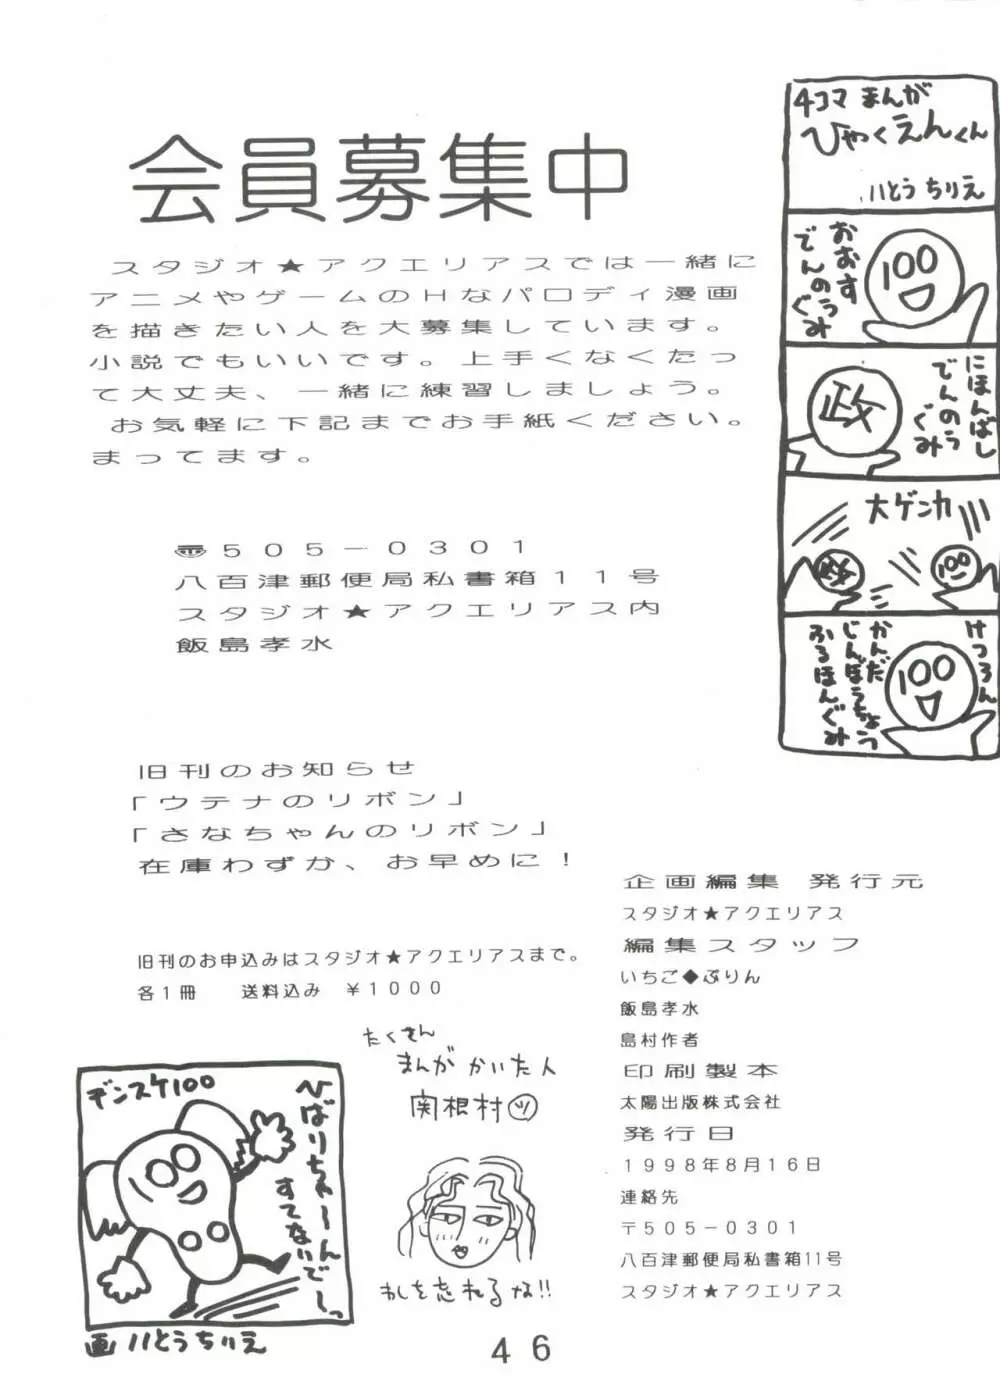 会員募集中
スタジオ★アクエリアスでは一緒に
アニメやゲームのHなパロディ漫画
を描きたい人を大募集しています。
小説でもいいです。上手くなくたっ
て大丈夫、一緒に練習しましょう。
お気軽に下記までお手紙ください。
まってます。
〠505−0301
八百津郵便局私書箱11号
スタジオ★アクエリアス内
飯島孝水
旧刊のお知らせ
「ウテナのリボン」
「さなちゃんのリボン」
在庫わずか、お早めに！
旧刊のお申込みはスタジオ★アクエリアスまで。
各1冊　送料込み　￥1000
4コマ まんが
ひゃくえんくん
いとう ちりえ
おおす
でんのうみ
ぐみ
100
にほんばし
でんのう
ぐみ
政
大ゲンカ
政
100
けつろん
かんだ
じんぼうちょう
ふるほんぐみ
100
企画編集 発行元
スタジオ★アクエリアス
編集スタッフ
いちご◆ぷりん
飯島孝水
島村作者
印刷製本
太陽出版株式会社
発行日
1998年8月16日
連絡先
〒505−0301
八百津郵便局私書箱11号
スタジオ★アクエリアス
たくさん
まんが かいた人
関根村ツ
わしを忘れるな!!
デンスケ100
ひばりちゃーんっ
すてないでー
画 いとうちりえ
46